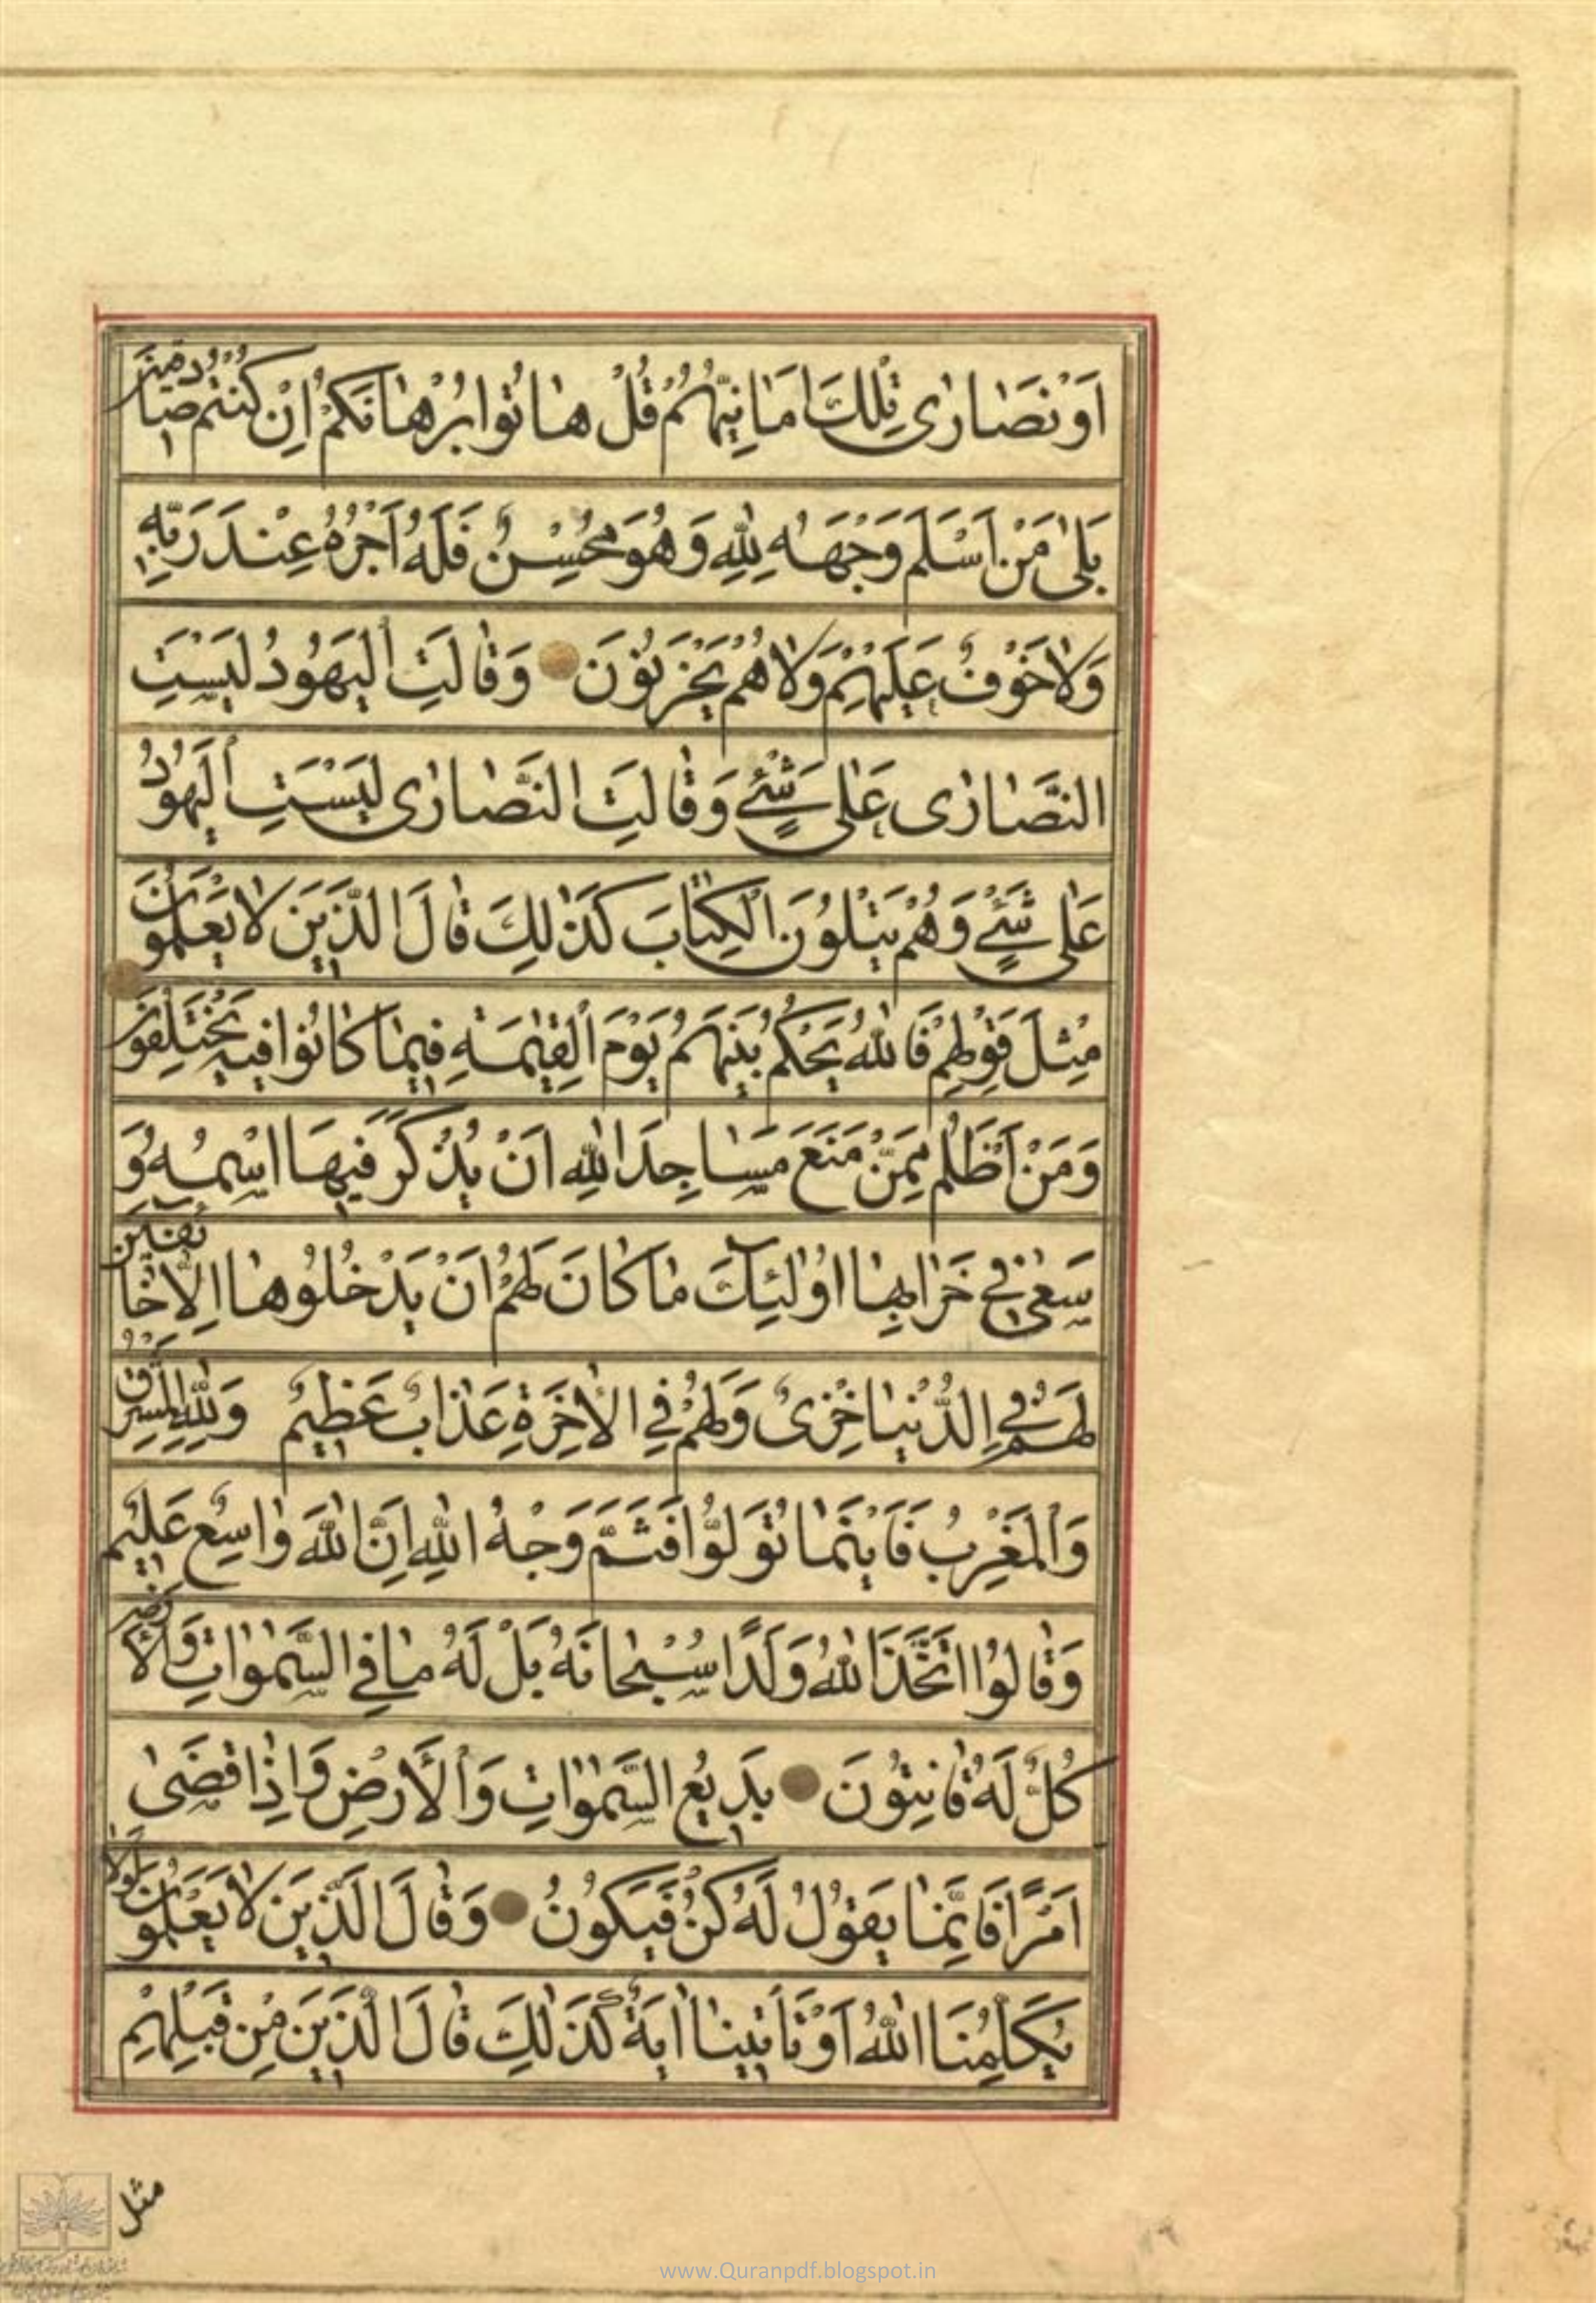 اَوْ نَصَارٰى تِلْكَ اَمَانِيُّهُمْ قُلْ هَاتُوا بُرْهَانَكُمْ اِنْ كُنْتُمْ صَادِقِينَ
بَلٰى مَنْ اَسْلَمَ وَجْهَهُ لِلّٰهِ وَهُوَ مُحْسِنٌ فَلَهُ اَجْرُهُ عِنْدَ رَبِّهِ
وَلَا خَوْفٌ عَلَيْهِمْ وَلَا هُمْ يَحْزَنُونَ وَقَالَتِ الْيَهُودُ لَيْسَتِ
النَّصَارٰى عَلٰى شَيْءٍ وَقَالَتِ النَّصَارٰى لَيْسَتِ الْيَهُودُ
عَلٰى شَيْءٍ وَهُمْ يَتْلُونَ الْكِتَابَ كَذٰلِكَ قَالَ الَّذِينَ لَا يَعْلَمُونَ
مِثْلَ قَوْلِهِمْ فَاللّٰهُ يَحْكُمُ بَيْنَهُمْ يَوْمَ الْقِيٰمَةِ فِيمَا كَانُوا فِيهِ يَخْتَلِفُونَ
وَمَنْ اَظْلَمُ مِمَّنْ مَنَعَ مَسَاجِدَ اللّٰهِ اَنْ يُذْكَرَ فِيهَا اسْمُهُ وَ
سَعٰى فِي خَرَابِهَا اُولٰئِكَ مَا كَانَ لَهُمْ اَنْ يَدْخُلُوهَا اِلَّا خَائِفِينَ
لَهُمْ فِي الدُّنْيَا خِزْىٌ وَلَهُمْ فِي الْاٰخِرَةِ عَذَابٌ عَظِيمٌ وَلِلّٰهِ الْمَشْرِقُ
وَالْمَغْرِبُ فَاَيْنَمَا تُوَلُّوا فَثَمَّ وَجْهُ اللّٰهِ اِنَّ اللّٰهَ وَاسِعٌ عَلِيمٌ
وَقَالُوا اتَّخَذَ اللّٰهُ وَلَدًا سُبْحَانَهُ بَلْ لَهُ مَا فِي السَّمٰوَاتِ وَالْاَرْضِ
كُلٌّ لَهُ قَانِتُونَ بَدِيعُ السَّمٰوَاتِ وَالْاَرْضِ وَاِذَا قَضٰى
اَمْرًا فَاِنَّمَا يَقُولُ لَهُ كُنْ فَيَكُونُ وَقَالَ الَّذِينَ لَا يَعْلَمُونَ لَوْلَا
يُكَلِّمُنَا اللّٰهُ اَوْ تَاْتِينَا اٰيَةٌ كَذٰلِكَ قَالَ الَّذِينَ مِنْ قَبْلِهِمْ
مثل
www.Quranpdf.blogspot.in